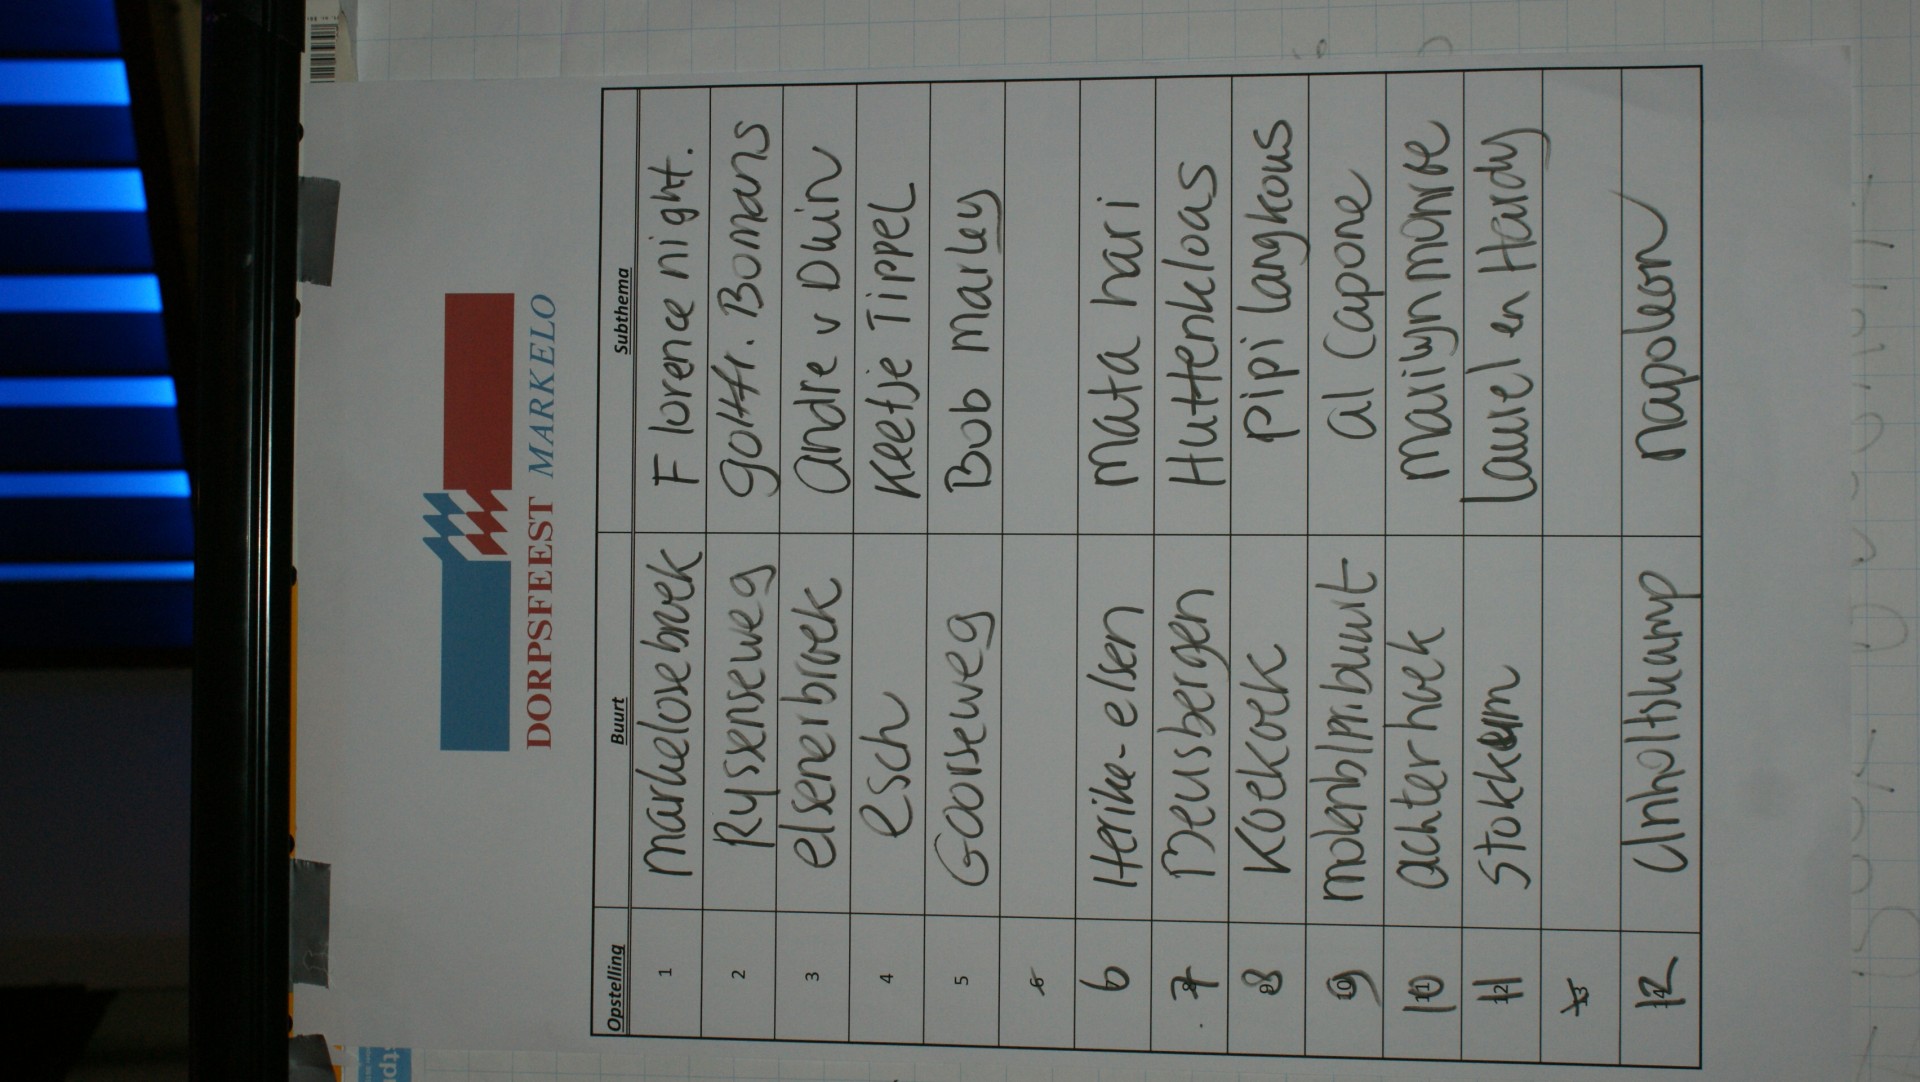 DORPSFEEST MARKELO
Opstelling Buurt Subthema
1 markelosebroek Florence night.
2 Ryssenseweg gottfr. Bomans
3 elsenerbroek andre v Duin
4 esch Keetje Tippel
5 Goorseweg Bob marley
6
6 Herike-elsen mata hari
7 Beusbergen Huttenkloas
8 Koekoek Pipi langkous
9 al Capone
10 achterhoek marilyn monroe
11 Stokkum laurel en Hardy
13
12 Anholtskamp napoleon